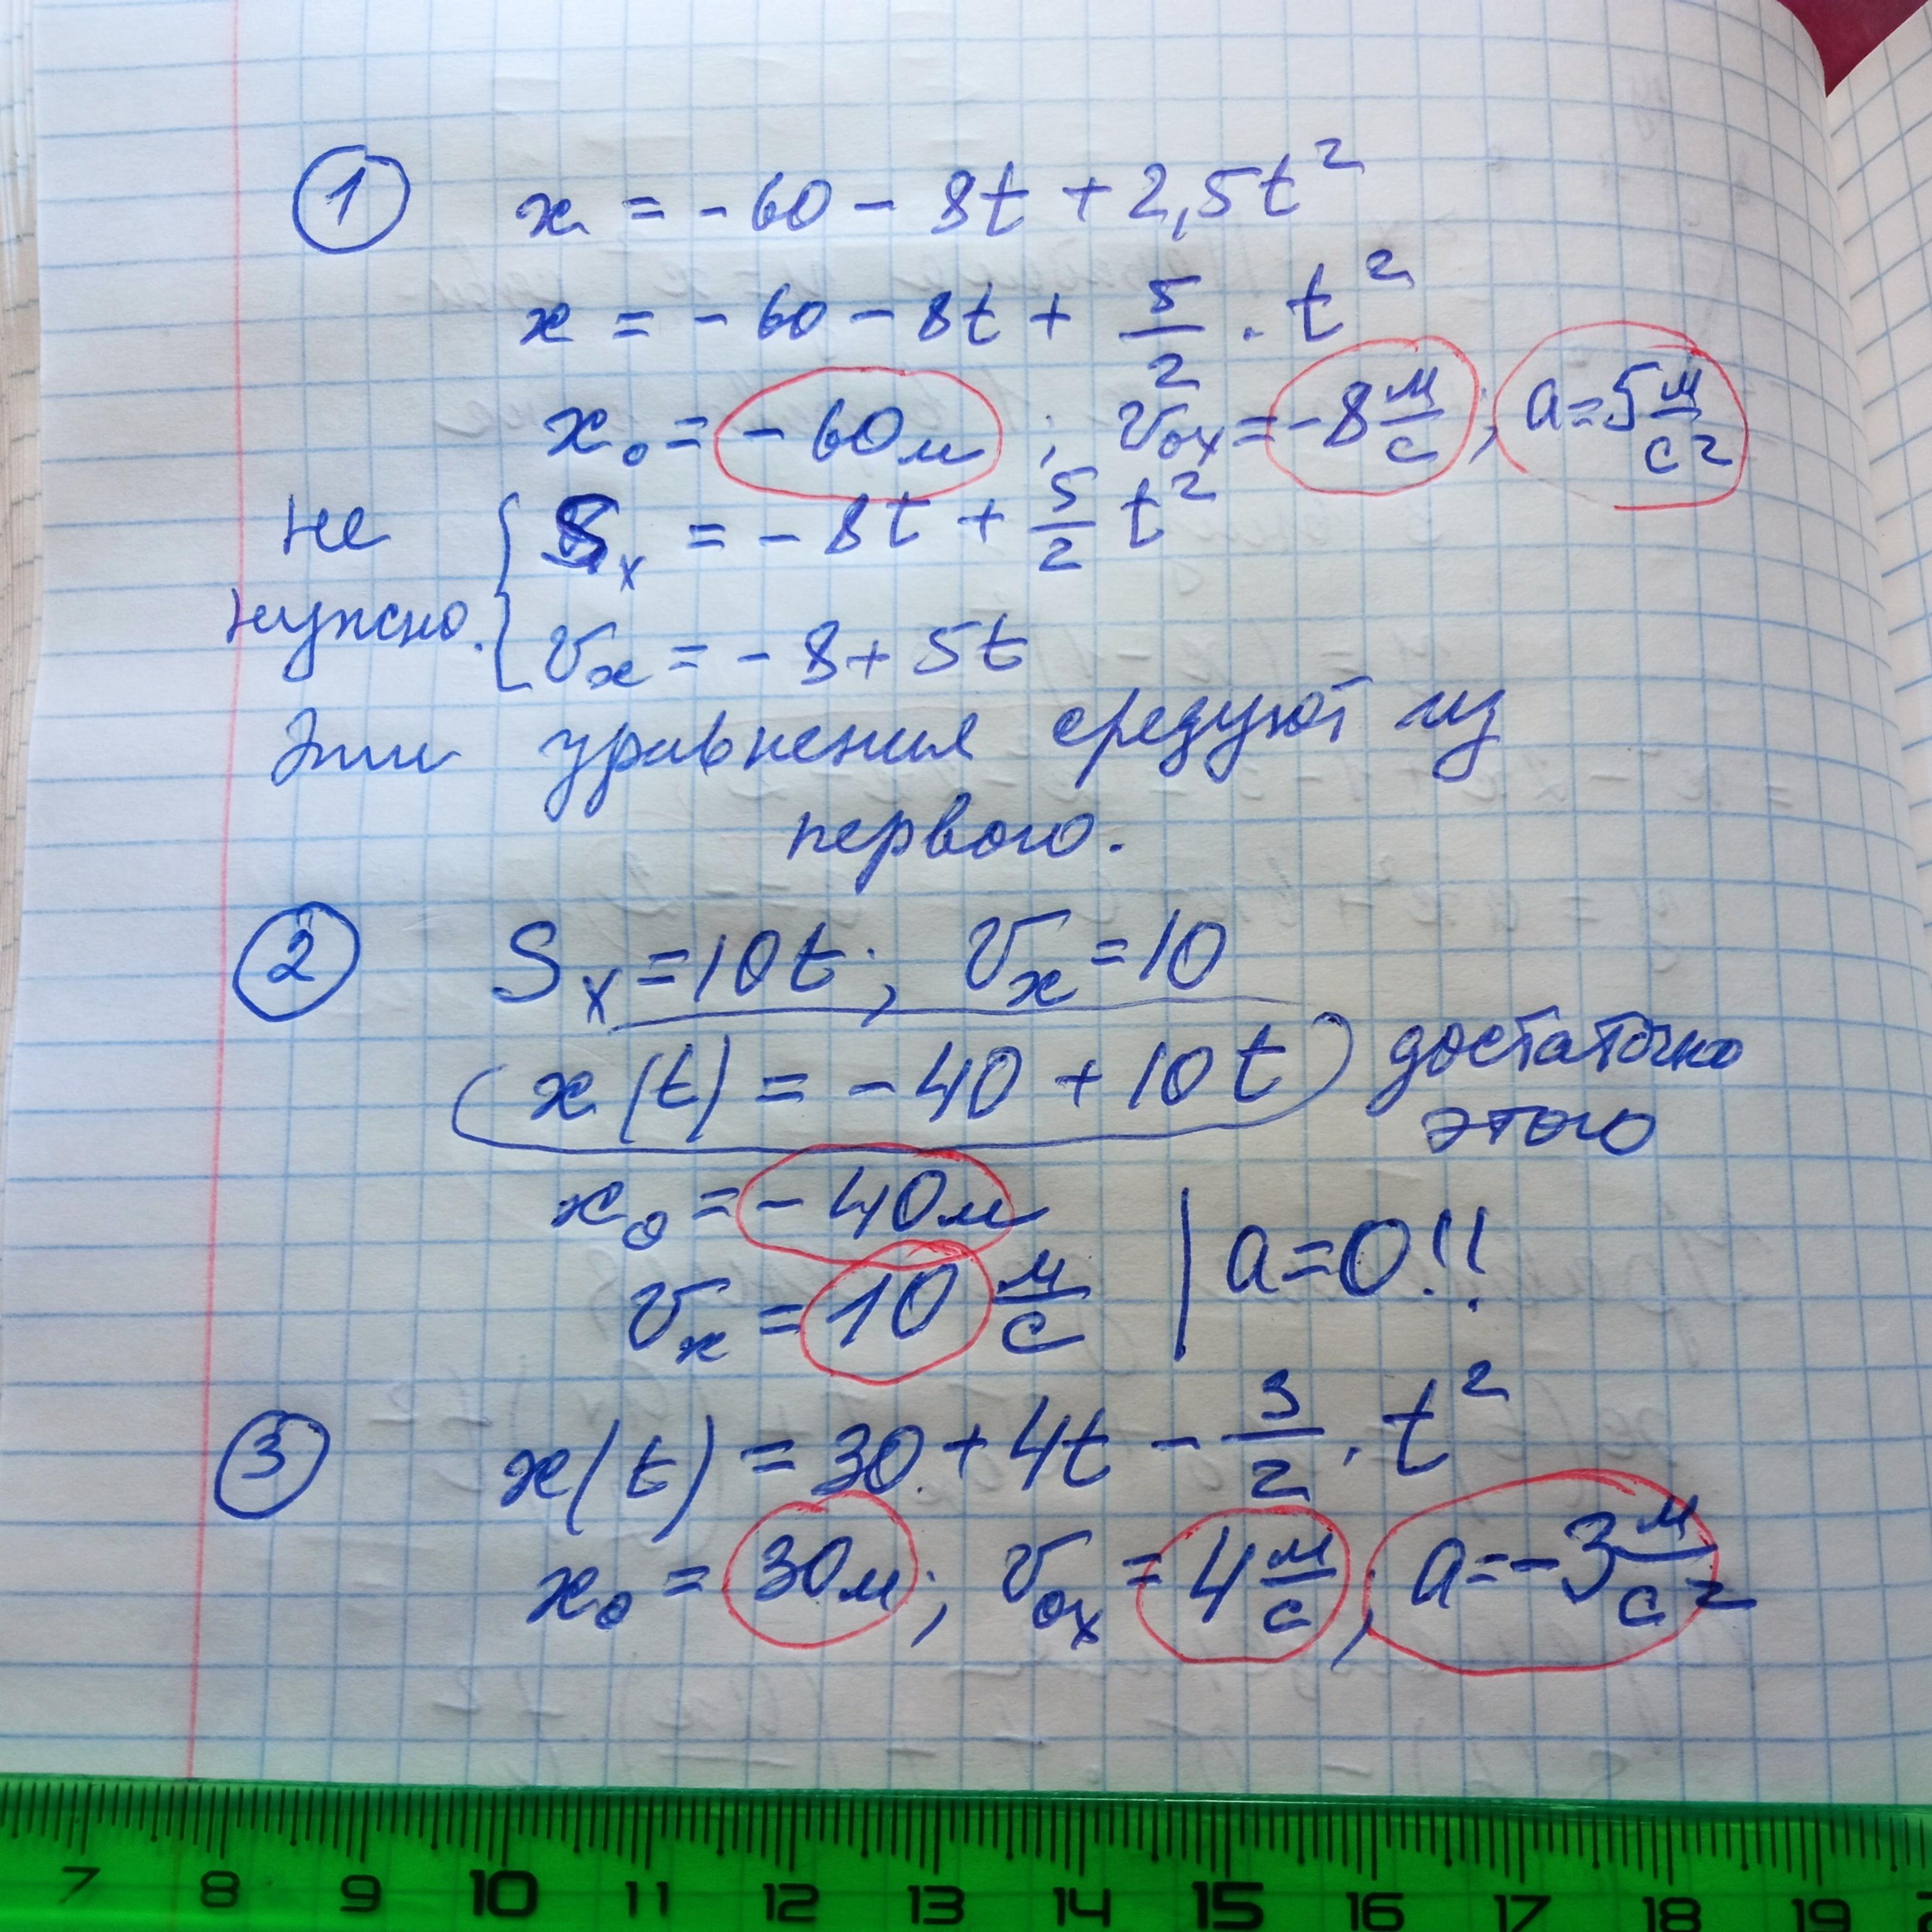 ① x = - 60 - 8t + 2,5t²
x = - 60 - 8t + 5/2 · t²
x₀ = - 60м ; v₀ₓ = -8 м/с ; a = 5 м/с²
не нужно. { Sₓ = - 8t + 5/2 t²
vₓ = - 8 + 5t
Эти уравнения средуют из
первого.
② Sₓ = 10t ; vₓ = 10
x(t) = - 40 + 10t достаточно
этого
x₀ = - 40м
vₓ = 10 м/с | a = 0!!
③ x(t) = 30 + 4t - 3/2 · t²
x₀ = 30м ; v₀ₓ = 4 м/с ; a = -3 м/с²
7 8 9 10 11 12 13 14 15 16 17 18 19